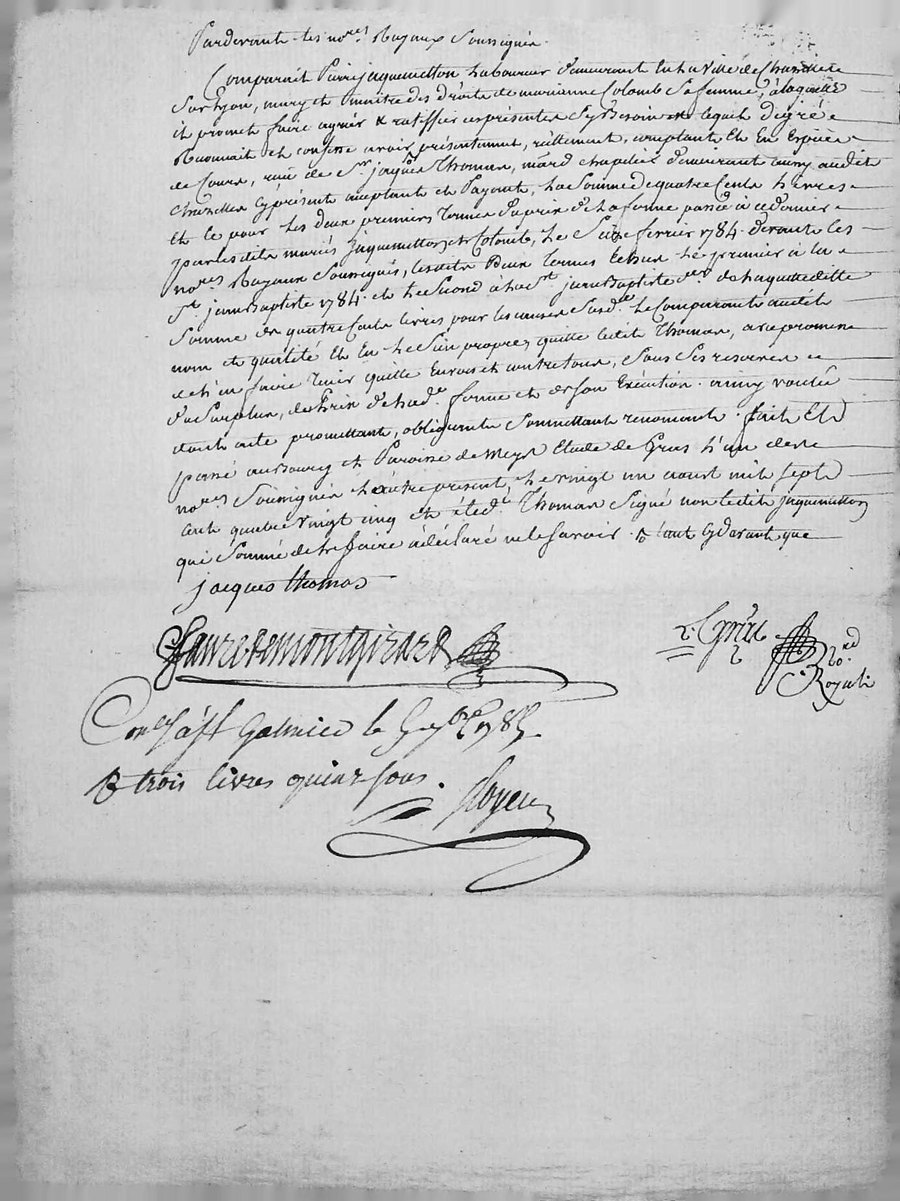 Pardevant les no.res Royaux Soussignés
Comparait Pierre jaquemetton Laboureur demeurant En La Ville de Chazelle
Sur Lyon, mary et maitre des droits de marianne Colomb Sa femme, a laquelle
il promet faire agréer & ratiffier ces présentes Sy Besoin est lequel de gré
Reconnait et confesse avoir présentement, réellement, comptant Et En Espèces
de Cours, reçu de S.r jacques Thomas, march.d chapelier demeurant aussy audit
Chazelles cy présent acceptant et Payant, La Somme de quatre Cents Livres
Et ce pour Les deux premiers Termes du prix de La ferme passée à ce dernier
par lesdits mariés jaquemetton et Colomb, Le fevrier 1784 devant les
no.res Royaux Soussignés, lesdits Deux Termes Echus Le premier à La
S.t jean Baptiste 1784 et Le Second à La S.t jean Baptiste de Laquelle ditte
Somme de quatre Cents livres pour les causes Susd.es Le Comparant audit
nom et qualité Et En Le Sien propre, quitte ledit Thomas, avec promesse
de L'en faire Tenir quitte Envers et contre tous, Sous Ses reserves
du Surplus, du Prix de Lad.e ferme et de Son Exécution. ainsy voulu
dont acte promettant, obligeant Soumettant renonçant. fait Et
passé au Bourg et Paroisse de Meys Etude de L'un desd.
no.res Soussignés L'autre présent, Le vingt un aoust mil Sept
Cent quatre vingt cinq et led.t Thomas Signé non ledit jaquemetton
qui Sommé de Le faire a déclaré ne le Savoir
jacques thomas
faure de montgirard
no.re
Royal
Con.lé à S.t Galmier le 1785.
R trois livres quinze sous.